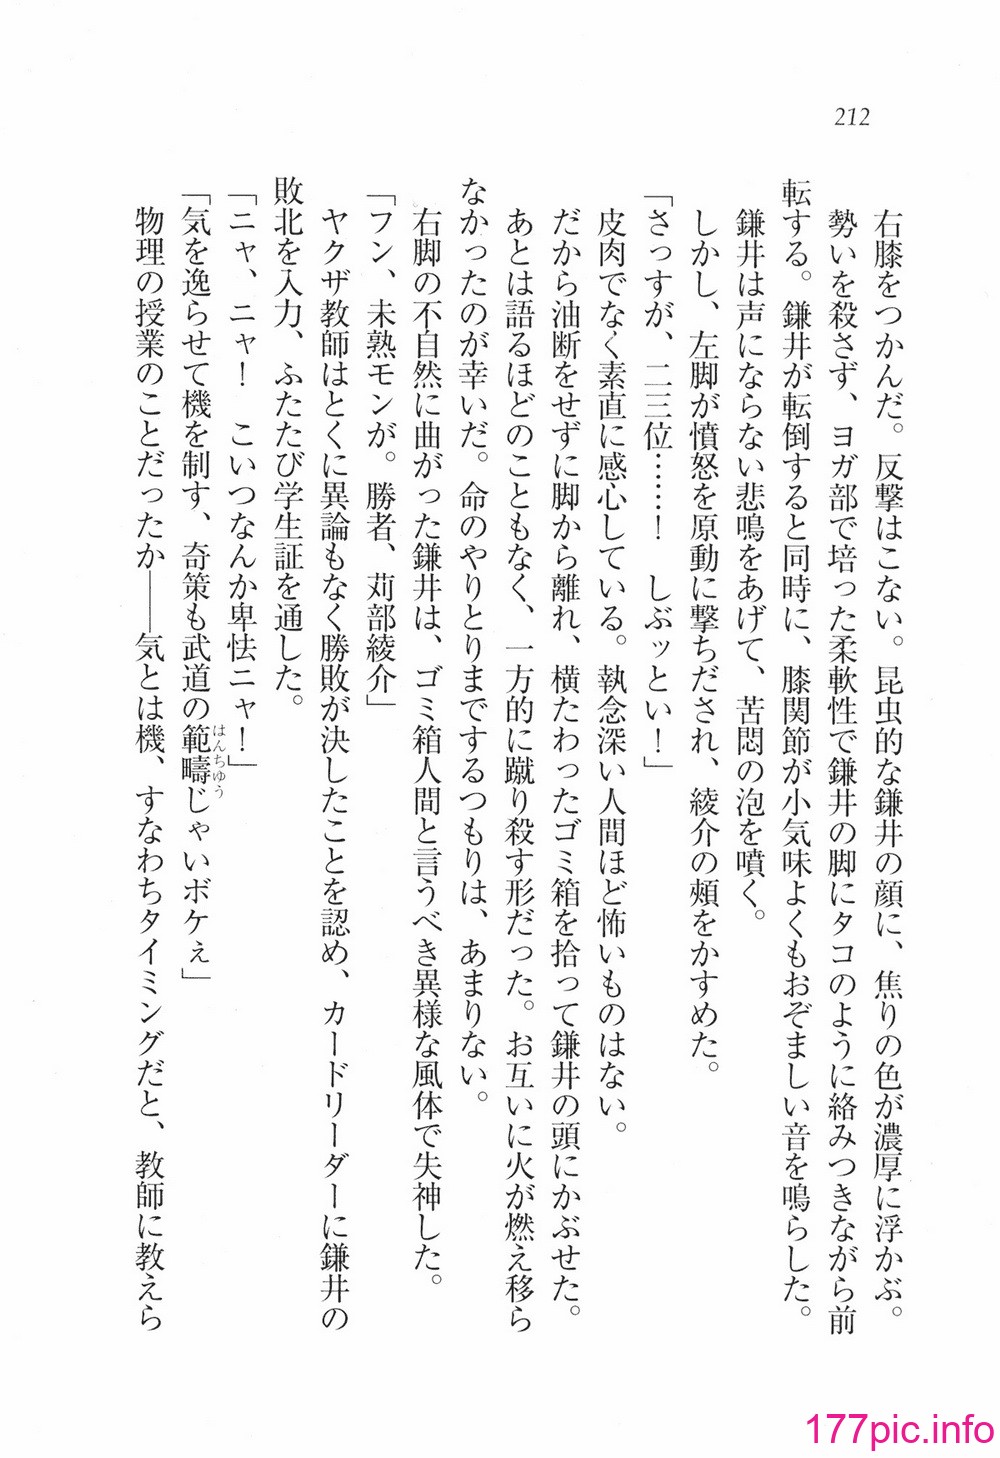 212
右膝をつかんだ。反撃はこない。昆虫的な鎌井の顔に、焦りの色が濃厚に浮かぶ。
勢いを殺さず、ヨガ部で培った柔軟性で鎌井の脚にタコのように絡みつきながら前
転する。鎌井が転倒すると同時に、膝関節が小気味よくもおぞましい音を鳴らした。
鎌井は声にならない悲鳴をあげて、苦悶の泡を噴く。
しかし、左脚が憤怒を原動に撃ちだされ、綾介の頬をかすめた。
「さっすが、二三位……！　しぶッとい！」
皮肉でなく素直に感心している。執念深い人間ほど怖いものはない。
だから油断をせずに脚から離れ、横たわったゴミ箱を拾って鎌井の頭にかぶせた。
あとは語るほどのこともなく、一方的に蹴り殺す形だった。お互いに火が燃え移ら
なかったのが幸いだ。命のやりとりまでするつもりは、あまりない。
右脚の不自然に曲がった鎌井は、ゴミ箱人間と言うべき異様な風体で失神した。
「フン、未熟モンが。勝者、苅部綾介」
ヤクザ教師はとくに異論もなく勝敗が決したことを認め、カードリーダーに鎌井の
敗北を入力、ふたたび学生証を通した。
「ニャ、ニャ！　こいつなんか卑怯ニャ！」
「気を逸らせて機を制す、奇策も武道の範疇じゃいボケぇ」
はんちゆう
物理の授業のことだったか――気とは機、すなわちタイミングだと、教師に教えら
177pic.info